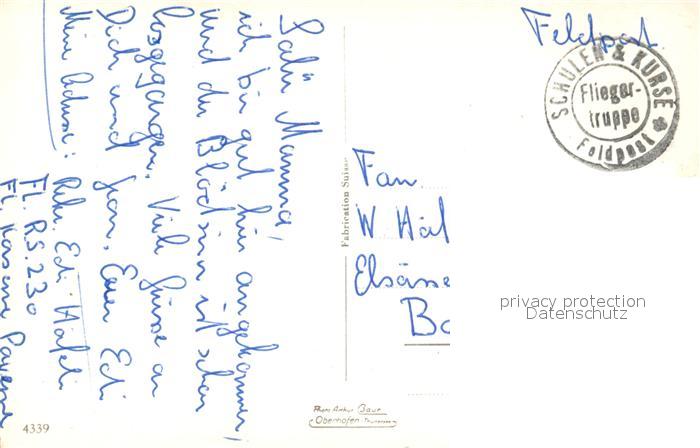 Salü Mamma,
ich bin gut hier angekommen,
und der Blödsinn ist schon
losgegangen. Viele Grüsse an
Dich und Jean, Euer Edi
Meine Adresse: Rekr. Edi Häfeli
FL. R.S. 230
FL. Kaserne Payerne
Feldpost.
SCHULEN & KURSE
Flieger-
truppe
Feldpost
Fabrication Suisse
W. Häf
Elsässe
Ba
privacy protection
Datenschutz
4339
Photo Arthur Baur
Oberhofen-Thunersee